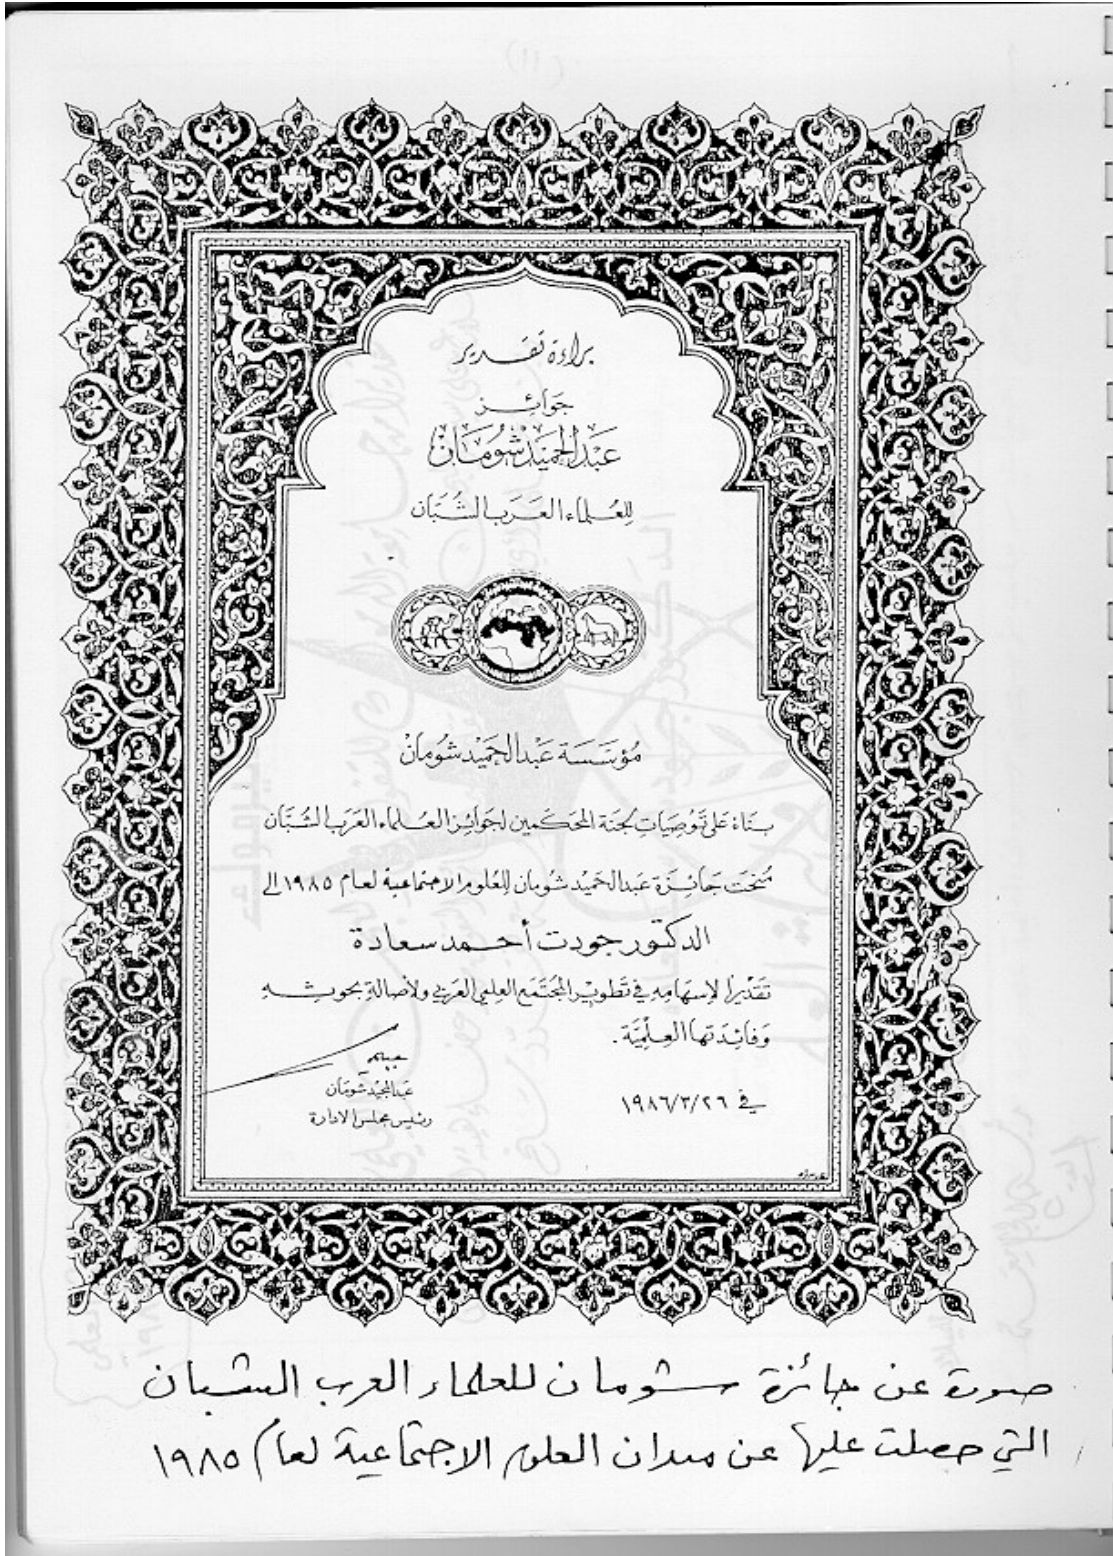 براءة تقدير
جوائز
عبد الحميد شومان
للعلماء العرب الشبان
مؤسسة عبد الحميد شومان
بناء على توصيات لجنة المحكمين لجوائز العلماء العرب الشبان
منحت جائزة عبد الحميد شومان للعلوم الاجتماعية لعام ١٩٨٥ الى
الدكتور جودت أحمد سعادة
تقديرا لإسهامه في تطوير المجتمع العلمي العربي ولأصالة بحوثه
وفائدتها العلمية.
في ١٩٨٦/٣/٢٦
عبد المجيد شومان
رئيس مجلس الادارة
صورة عن جائزة شومان للعلماء العرب الشبان
التي حصلت عليها عن ميدان العلوم الاجتماعية لعام ١٩٨٥